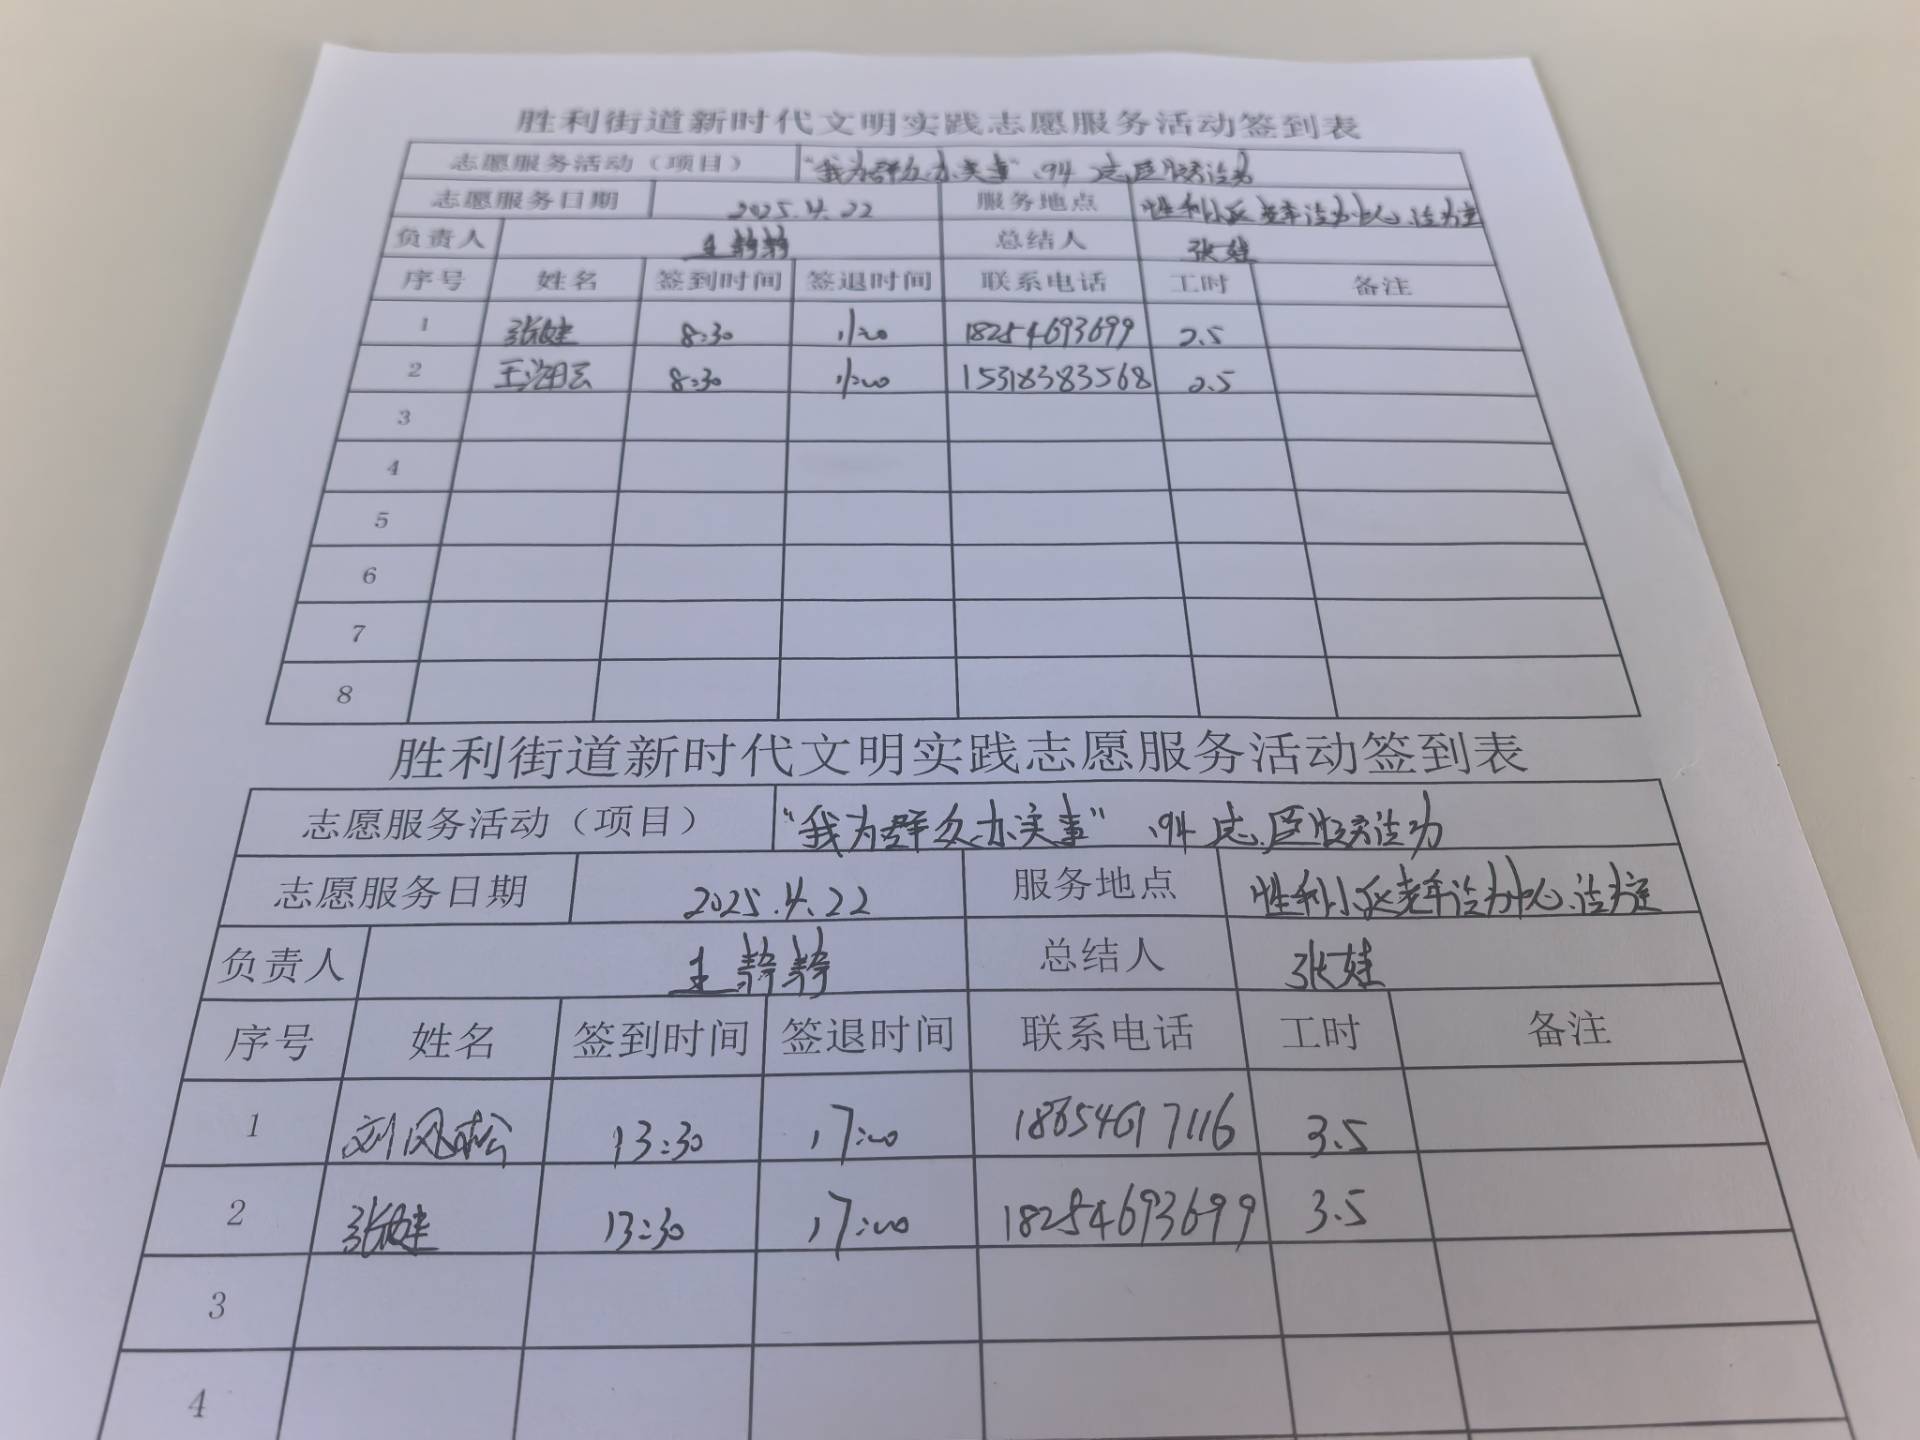 胜利街道新时代文明实践志愿服务活动签到表
志愿服务活动（项目） “我为群众办实事”
志愿服务日期 2025.4.22 服务地点 胜利小区老年活动中心活动室
负责人 王静静 总结人 张娃
序号 姓名 签到时间 签退时间 联系电话 工时 备注
1 张健 8:30 11:00 18254693699 2.5
2 8:30 11:00 15318383568 2.5
3
4
5
6
7
8
胜利街道新时代文明实践志愿服务活动签到表
志愿服务活动（项目） “我为群众办实事”
志愿服务日期 2025.4.22 服务地点 胜利小区老年活动中心活动室
负责人 王静静 总结人 张娃
序号 姓名 签到时间 签退时间 联系电话 工时 备注
1 刘风松 13:30 17:00 18654617116 3.5
2 张健 13:30 17:00 18254693699 3.5
3
4